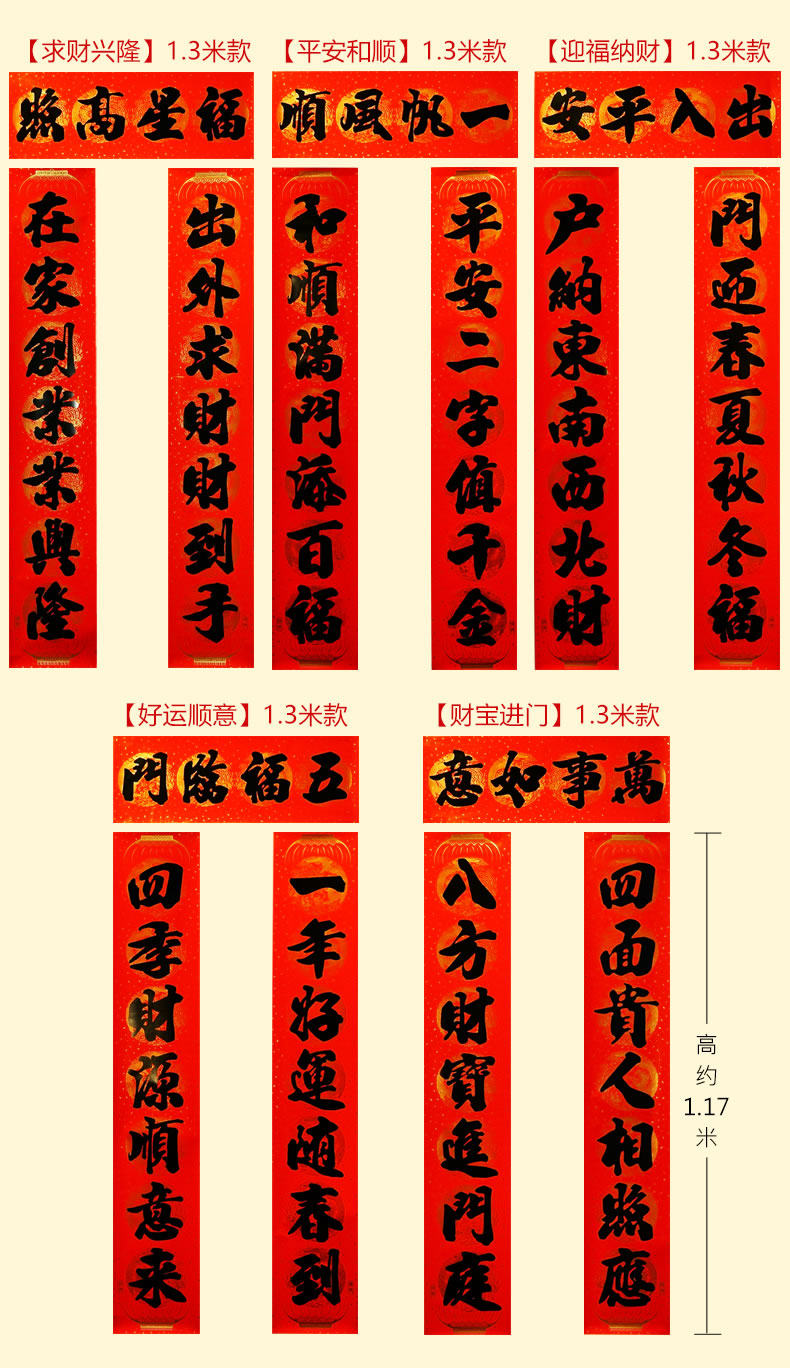 【求财兴隆】1.3米款
福星高照
出外求財財到手
在家創業業興隆
【平安和顺】1.3米款
一帆風順
平安二字值千金
和順滿門添百福
【迎福纳财】1.3米款
出入平安
門迎春夏秋冬福
户納東南西北財
【好运顺意】1.3米款
五福臨門
一年好運随春到
四季財源順意来
【财宝进门】1.3米款
萬事如意
四面貴人相照應
八方財寶進門庭
高约1.17米